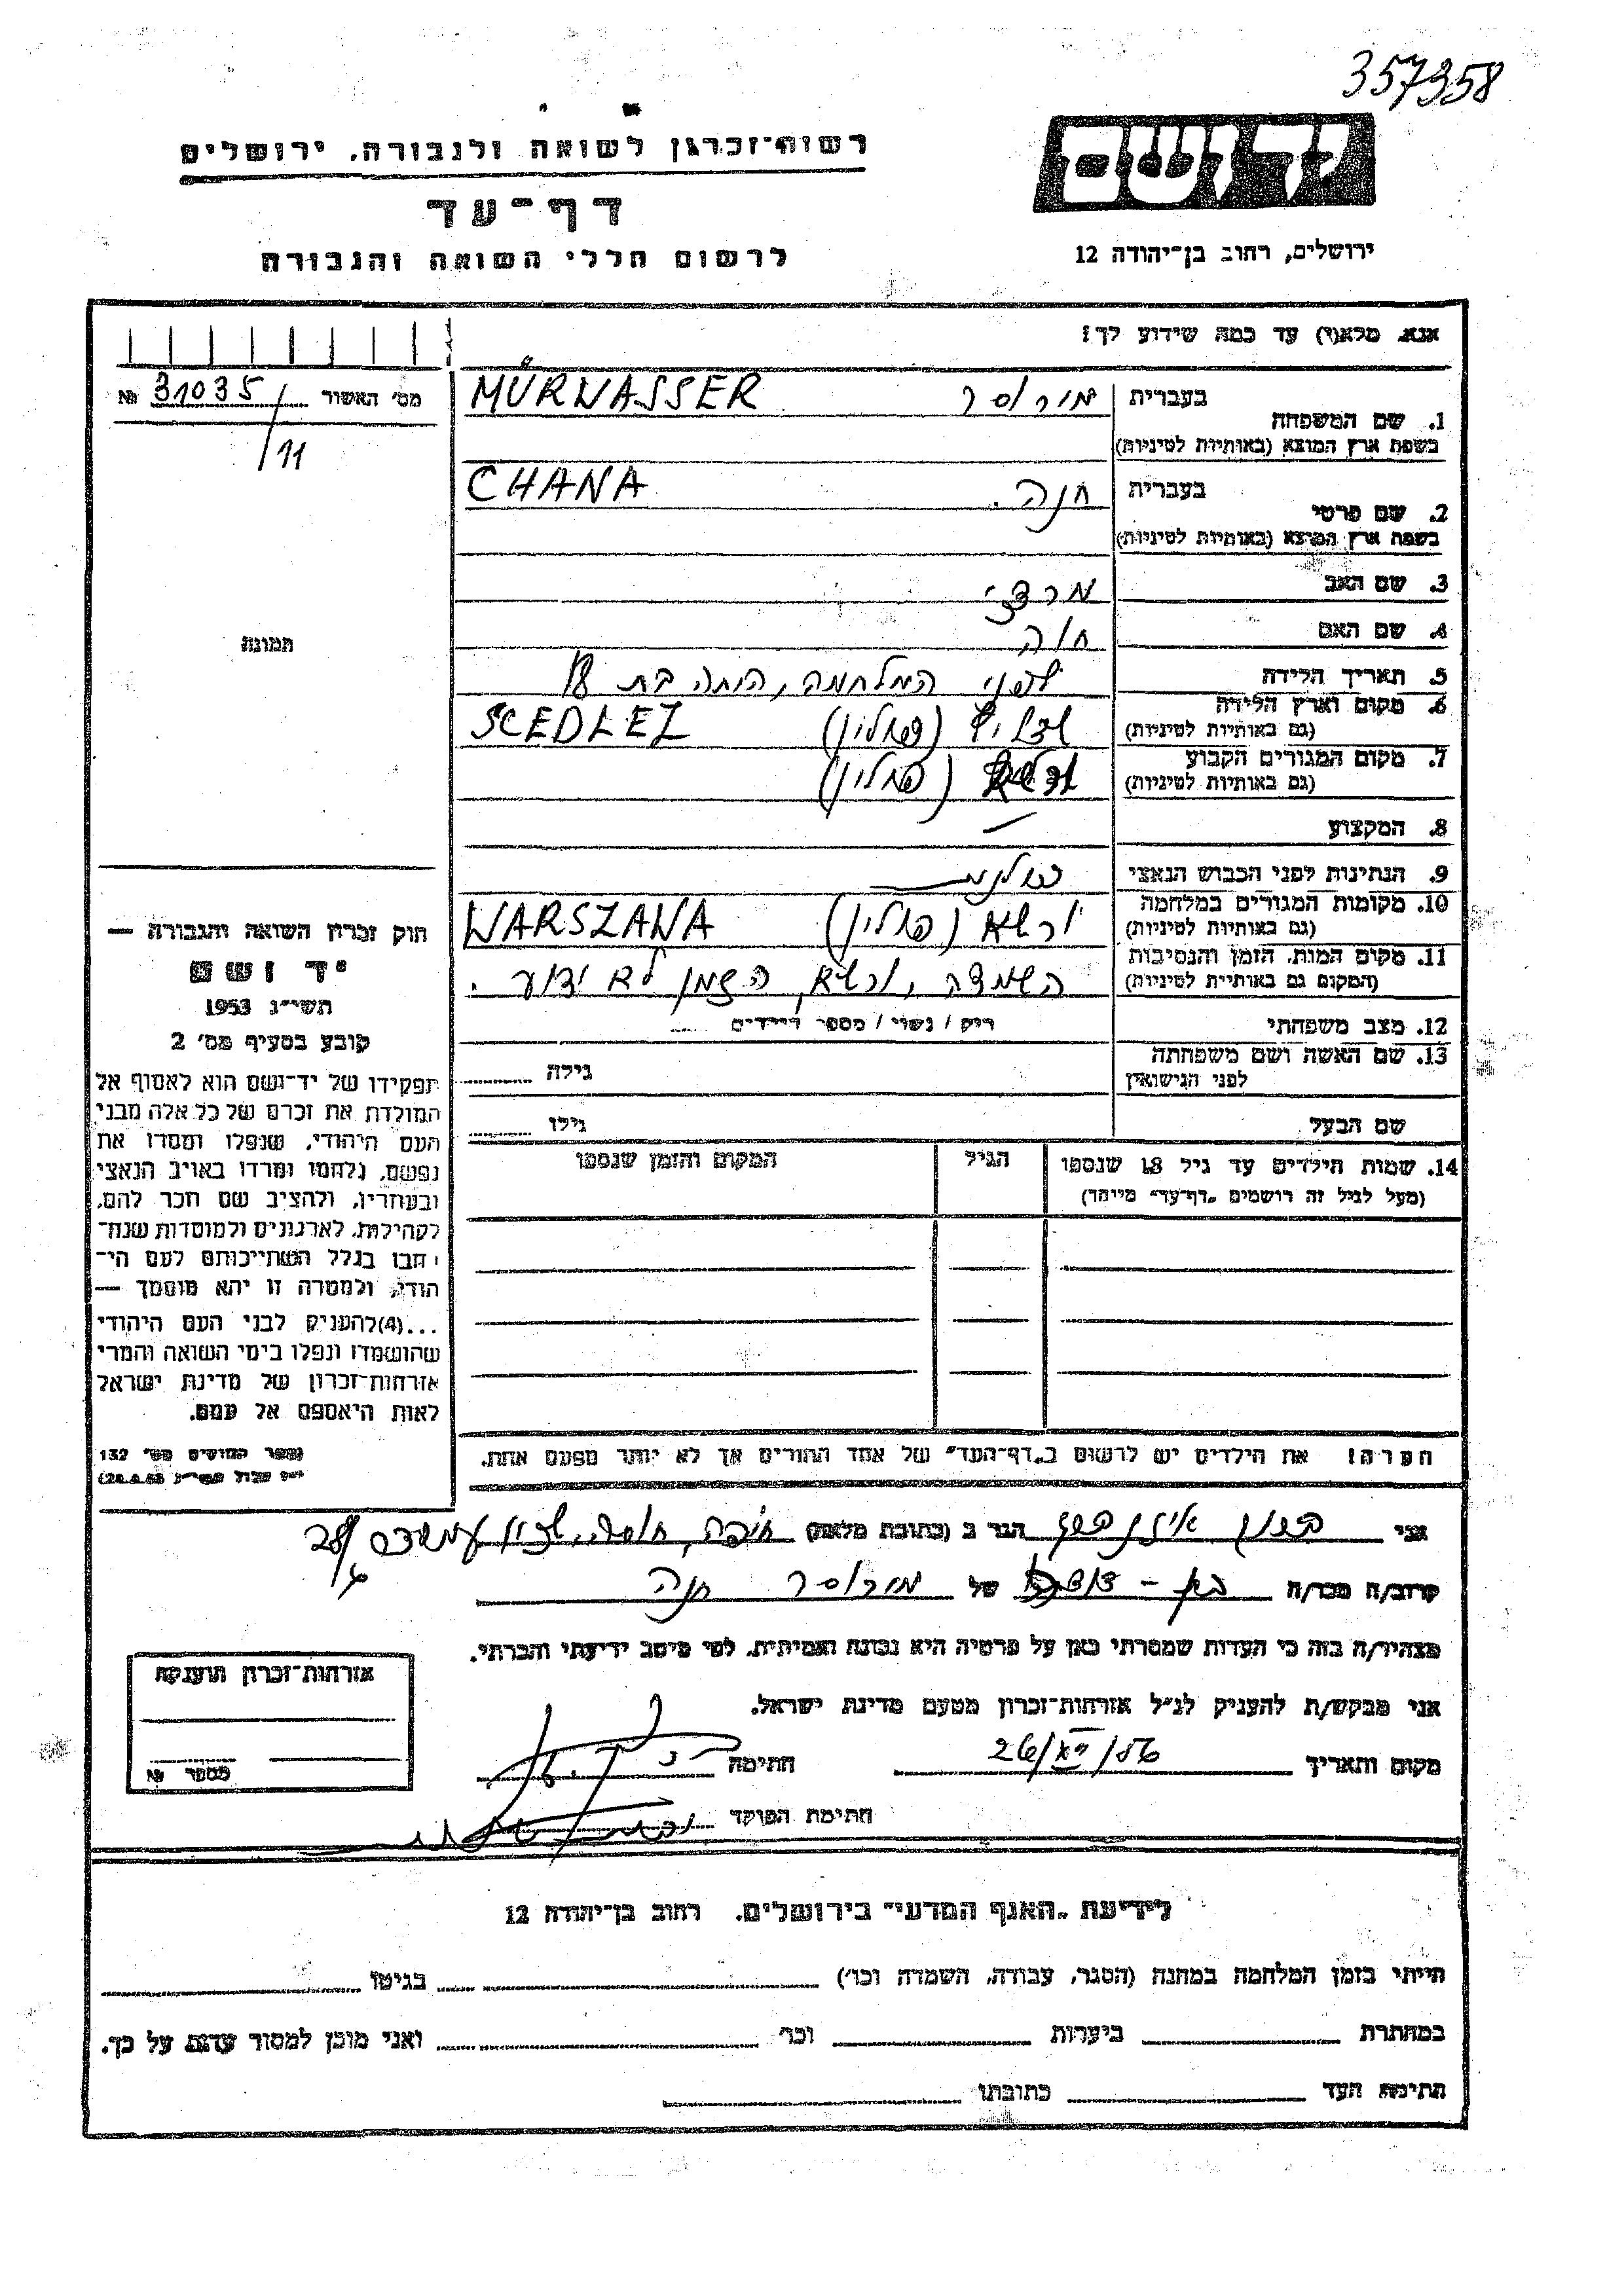 357358
יד ושם
רשות־זכרון לשואה ולגבורה, ירושלים
דף־עד
לרשום חללי השואה והגבורה
ירושלים, רחוב בן־יהודה 12
אנא, מלא(י) עד כמה שידוע לך!
מס׳ האשור 31035 №
/11
1. שם המשפחה
בעברית מורוסר MÜRWASSER
בשפת ארץ המוצא (באותיות לטיניות)
2. שם פרטי
בעברית חנה. CHANA
בשפת ארץ המוצא (באותיות לטיניות)
3. שם האב מרדכי
4. שם האם חוה
5. תאריך הלידה לפני המלחמה, היתה בת 18
6. מקום וארץ הלידה (פולין) SCEDLEZ
(גם באותיות לטיניות)
7. מקום המגורים הקבוע (פולין)
(גם באותיות לטיניות)
8. המקצוע —
9. הנתינות לפני הכבוש הנאצי פולנית
10. מקומות המגורים במלחמה ורשא (פולין) WARSZAWA
(גם באותיות לטיניות)
11. מקום המות, הזמן והנסיבות השמדה, ורשא, הזמן לא ידוע.
(המקום גם באותיות לטיניות)
12. מצב משפחתי רווק / נשוי / מספר הילדים
13. שם האשה ושם משפחתה
לפני הנישואין גילה
שם הבעל גילו
14. שמות הילדים עד גיל 18 שנספו הגיל המקום והזמן שנספו
(מעל לגיל זה רושמים „דף־עד״ מיוחד)
הערה: את הילדים יש לרשום ב„דף־העד״ של אחד ההורים אך לא יותר מפעם אחת.
תמונה
חוק זכרון השואה והגבורה —
יד ושם
תשי״ג 1953
קובע בסעיף מס׳ 2
תפקידו של יד־ושם הוא לאסוף אל
המולדת את זכרם של כל אלה מבני
העם היהודי, שנפלו ומסרו את
נפשם, נלחמו ומרדו באויב הנאצי
ובעוזריו, ולהציב שם וזכר להם,
לקהילות, לארגונים ולמוסדות שנח־
רבו בגלל השתייכותם לעם הי־
הודי, ולמטרה זו יהא מוסמך —
...(4) להעניק לבני העם היהודי
שהושמדו ונפלו בימי השואה והמרי
אזרחות־זכרון של מדינת ישראל
לאות היאספם אל עמם.
(ספר החוקים מס׳ 132
אני הגר ב (כתובת מלאה) חיפה,
קרוב/ה מכר/ה בת-דודה של מורוסר חנה
מצהיר/ה בזה כי העדות שמסרתי כאן על פרטיה היא נכונה ואמיתית, לפי מיטב ידיעתי והכרתי.
אני מבקש/ת להעניק לנ״ל אזרחות־זכרון מטעם מדינת ישראל.
מקום ותאריך חתימה
חתימת הפוקד
אזרחות־זכרון הוענקה
מספר №
לידיעת „האגף המדעי״ בירושלים, רחוב בן־יהודה 12
הייתי בזמן המלחמה במחנה (הסגר, עבודה, השמדה וכו׳) בגיטו
במחתרת ביערות וכו׳ ואני מוכן למסור עדות על כך.
חתימת העד כתובתו